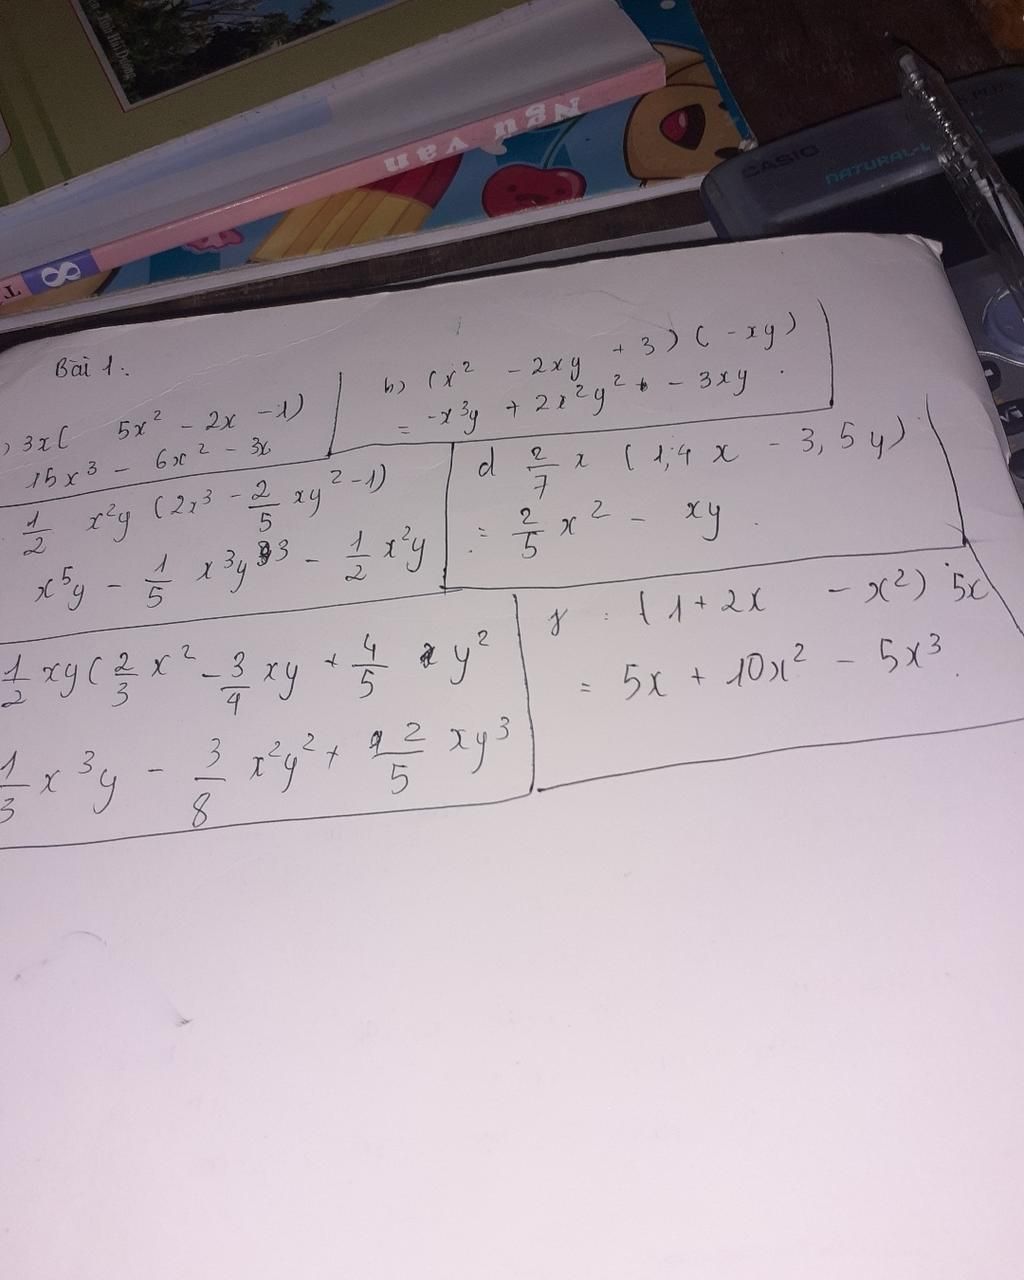 Ngữ văn
8
T
CASIO
NATURAL-
PLUS
Bài 1:
) 3x( 5x² - 2x - 1)
15x³ - 6x² - 3x
b) (x² - 2xy + 3) (-xy)
= -x³y + 2x²y² - 3xy.
1/2 x²y (2x³ - 2/5 xy² - 1)
x⁵y - 1/5 x³y³ - 1/2 x²y
d 2/7 x (1,4 x - 3,5 y)
= 2/5 x² - xy.
1/2 xy (2/3 x² - 3/4 xy + 4/5 y²
1/3 x³y - 3/8 x²y² + 2/5 xy³
f : (1 + 2x - x²) 5x
= 5x + 10x² - 5x³.